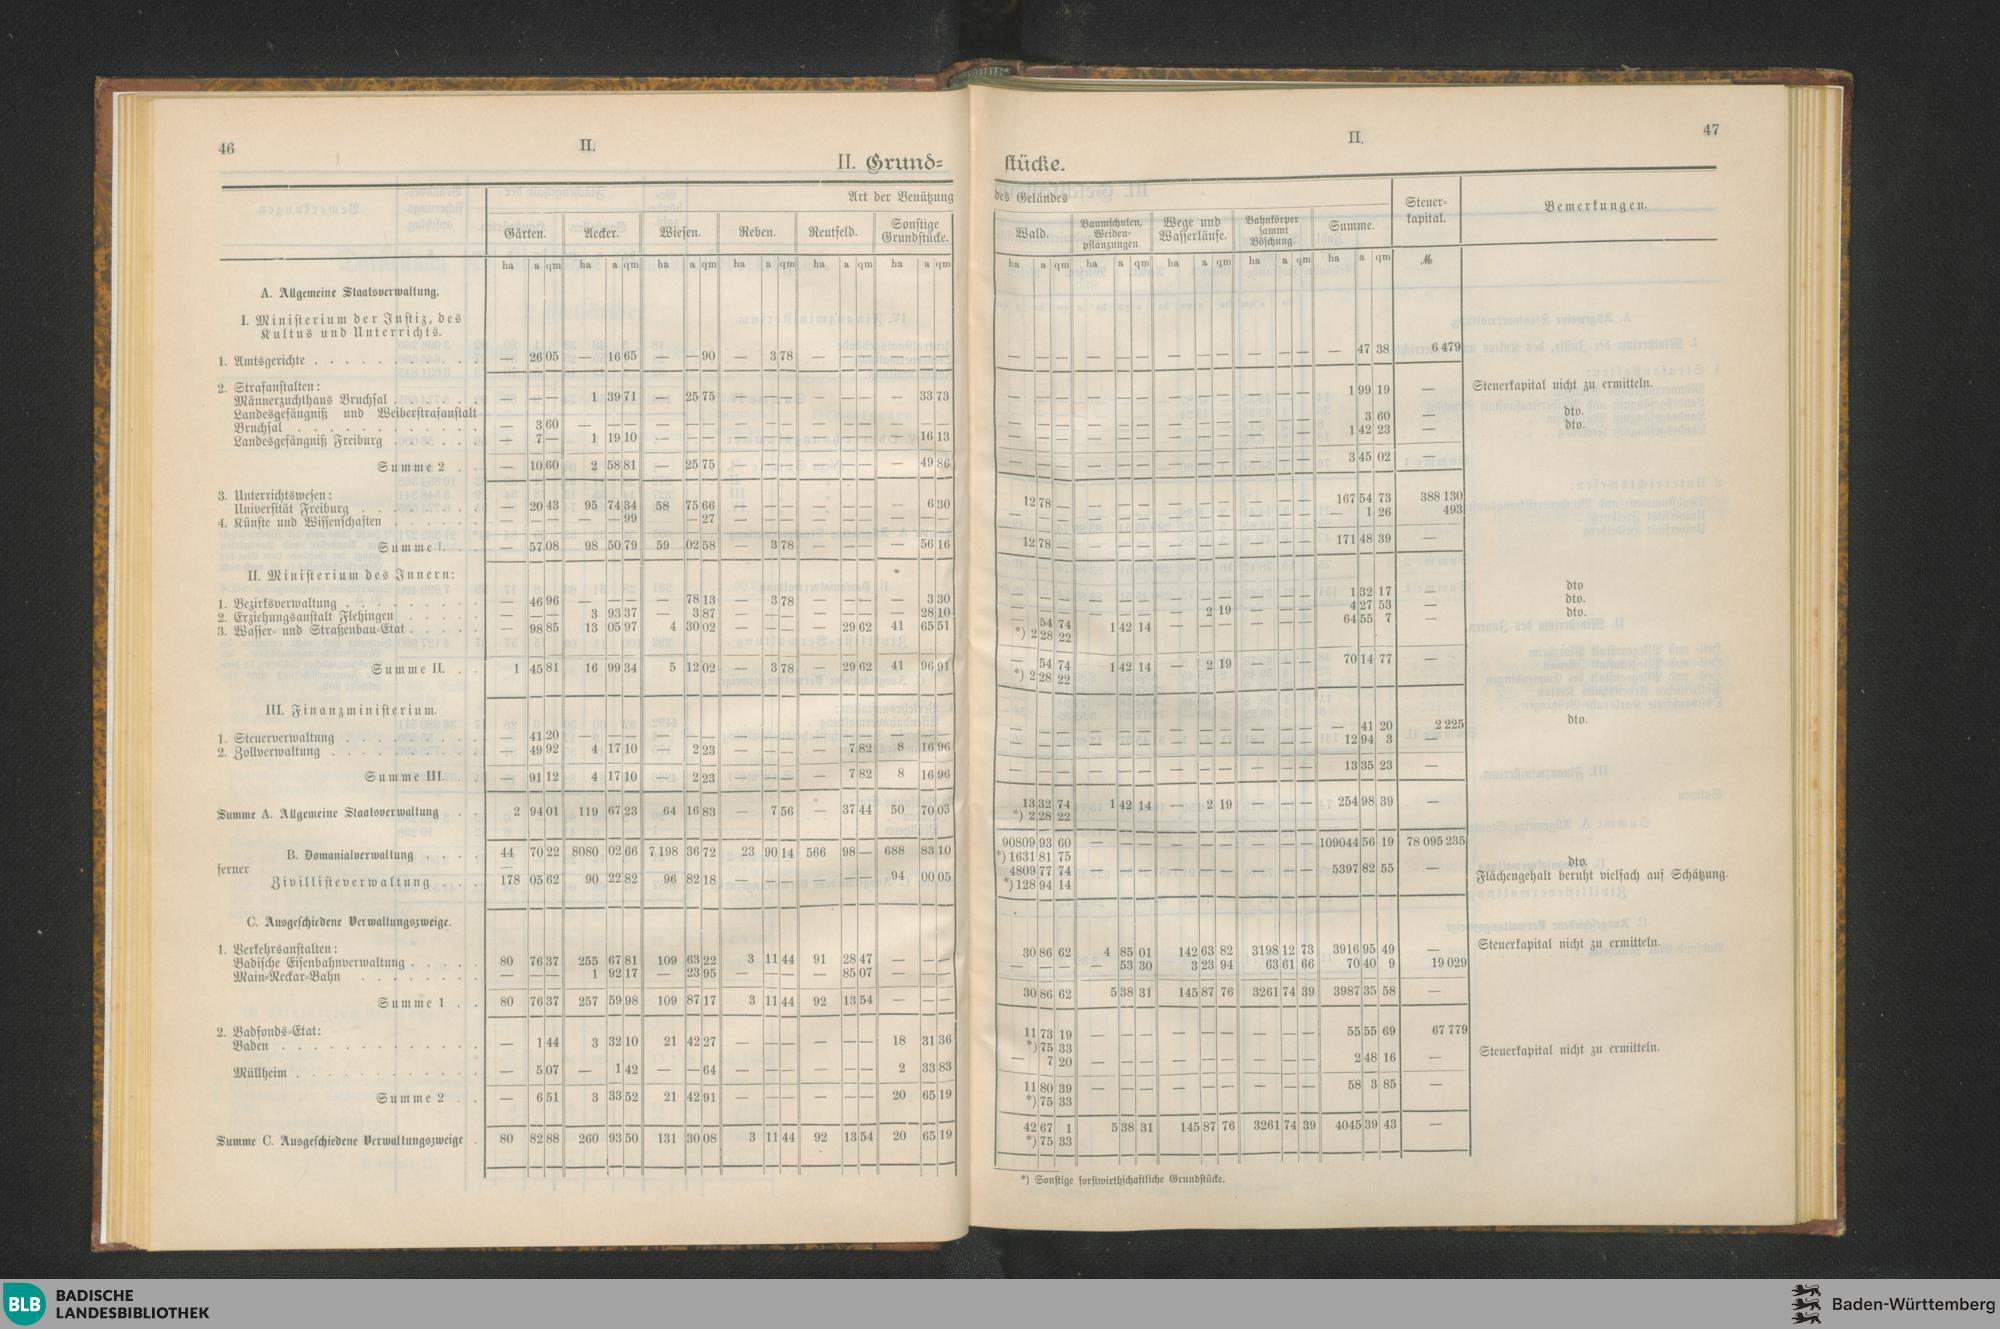 46
II.
II. Grund-
Art der Benützung
Gärten. Aecker. Wiesen. Reben. Reutfeld. Sonstige Grundstücke.
ha a qm ha a qm ha a qm ha a qm ha a qm ha a qm
A. Allgemeine Staatsverwaltung.
I. Ministerium der Justiz, des
Kultus und Unterrichts.
1. Amtsgerichte . — 26 05 — 16 65 — — 90 — 3 78 — — — — — —
2. Strafanstalten:
Männerzuchthaus Bruchsal . — — — 1 39 71 — 25 75 — — — — — — — 33 73
Landesgefängniß und Weiberstrafanstalt
Bruchsal . — 3 60 — — — — — — — — — — — — — — —
Landesgefängniß Freiburg . — 7 — 1 19 10 — — — — — — — — — — 16 13
Summe 2 . — 10 60 2 58 81 — 25 75 — — — — — — — 49 86
3. Unterrichtswesen:
Universität Freiburg . — 20 43 95 74 34 58 75 66 — — — — — — — 6 30
4. Künste und Wissenschaften . — — — — — 99 — — 27 — — — — — — — — —
Summe I. — 57 08 98 50 79 59 02 58 — 3 78 — — — — 56 16
II. Ministerium des Innern:
1. Bezirksverwaltung . — 46 96 — — — — 78 13 — 3 78 — — — — 3 30
2. Erziehungsanstalt Flehingen . — — — 3 93 37 — 3 87 — — — — — — — 28 10
3. Wasser- und Straßenbau-Etat . — 98 85 13 05 97 4 30 02 — — — — 29 62 41 65 51
Summe II. . 1 45 81 16 99 34 5 12 02 — 3 78 — 29 62 41 96 91
III. Finanzministerium.
1. Steuerverwaltung . — 41 20 — — — — — — — — — — — — — — —
2. Zollverwaltung . — 49 92 4 17 10 — 2 23 — — — — 7 82 8 16 96
Summe III. . — 91 12 4 17 10 — 2 23 — — — — 7 82 8 16 96
Summe A. Allgemeine Staatsverwaltung . 2 94 01 119 67 23 64 16 83 — 7 56 — 37 44 50 70 03
B. Domanialverwaltung . 44 70 22 8080 02 66 7 198 36 72 23 90 14 566 98 — 688 83 10
ferner
Zivillisteverwaltung . 178 05 62 90 22 82 96 82 18 — — — — — — 94 00 05
C. Ausgeschiedene Verwaltungszweige.
1. Verkehrsanstalten:
Badische Eisenbahnverwaltung . 80 76 37 255 67 81 109 63 22 3 11 44 91 28 47 — — —
Main-Neckar-Bahn . — — — 1 92 17 — 23 95 — — — — 85 07 — — —
Summe 1 . 80 76 37 257 59 98 109 87 17 3 11 44 92 13 54 — — —
2. Badfonds-Etat:
Baden . — 1 44 3 32 10 21 42 27 — — — — — — 18 31 36
Müllheim . — 5 07 — 1 42 — — 64 — — — — — — 2 33 83
Summe 2 . — 6 51 3 33 52 21 42 91 — — — — — — 20 65 19
Summe C. Ausgeschiedene Verwaltungszweige . 80 82 88 260 93 50 131 30 08 3 11 44 92 13 54 20 65 19
II.
47
stücke.
des Geländes
Wald. Baumschulen, Weiden-pflanzungen Wege und Wasserläufe. Bahnkörper sammt Böschung. Summe. Steuer-kapital. Bemerkungen.
ha a qm ha a qm ha a qm ha a qm ha a qm ℳ
— — — — — — — — — — — — — 47 38 6 479
— — — — — — — — — — — — 1 99 19 — Steuerkapital nicht zu ermitteln.
— — — — — — — — — — — — 3 60 — dto.
— — — — — — — — — — — — 1 42 23 — dto.
— — — — — — — — — — — — 3 45 02 —
12 78 — — — — — — — — — — 167 54 73 388 130
— — — — — — — — — — — — — 1 26 493
12 78 — — — — — — — — — — 171 48 39 —
— — — — — — — — — — — — 1 32 17 — dto
— — — — — — — 2 19 — — — 4 27 53 — dto.
— 54 74 1 42 14 — — — — — — 64 55 7 — dto.
*) 2 28 22
— 54 74 1 42 14 — 2 19 — — — 70 14 77 —
*) 2 28 22
— — — — — — — — — — — — — 41 20 2 225
— — — — — — — — — — — — 12 94 3 — dto.
— — — — — — — — — — — — 13 35 23 —
13 32 74 1 42 14 — 2 19 — — — 254 98 39 —
*) 2 28 22
90809 93 60 — — — — — — — — — 109044 56 19 78 095 235
*) 1631 81 75
4809 77 74 — — — — — — — — — 5397 82 55 — dto.
*) 128 94 14 Flächengehalt beruht vielfach auf Schätzung.
30 86 62 4 85 01 142 63 82 3198 12 73 3916 95 49 — Steuerkapital nicht zu ermitteln.
— — — — 53 30 3 23 94 63 61 66 70 40 9 19 029
30 86 62 5 38 31 145 87 76 3261 74 39 3987 35 58 —
11 73 19 — — — — — — — — — 55 55 69 67 779
*) 75 33
— 7 20 — — — — — — — — — 2 48 16 — Steuerkapital nicht zu ermitteln.
11 80 39 — — — — — — — — — 58 3 85 —
*) 75 33
42 67 1 5 38 31 145 87 76 3261 74 39 4045 39 43 —
*) 75 33
*) Sonstige forstwirthschaftliche Grundstücke.
BLB BADISCHE
LANDESBIBLIOTHEK
Baden-Württemberg